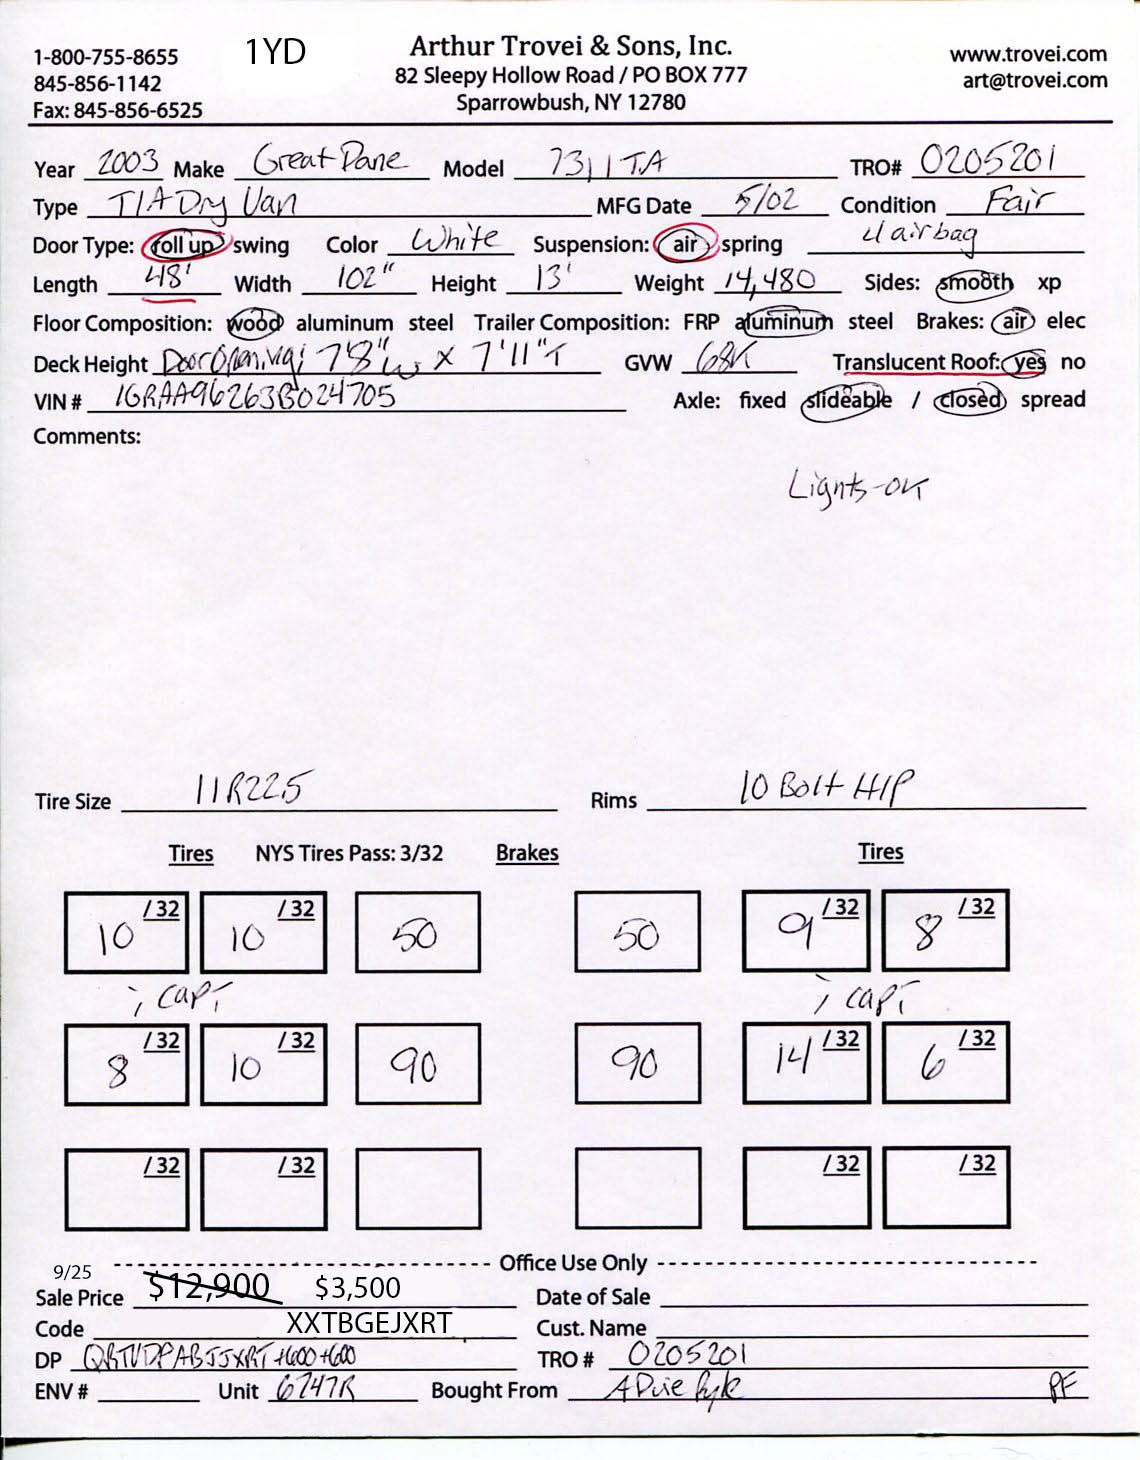 1-800-755-8655 1YD Arthur Trovei & Sons, Inc. www.trovei.com
845-856-1142 82 Sleepy Hollow Road / PO BOX 777 art@trovei.com
Fax: 845-856-6525 Sparrowbush, NY 12780
Year 2003 Make Great Dane Model 7311TA TRO# 0205201
Type T/A Dry Van MFG Date 5/02 Condition Fair
Door Type: roll up swing Color White Suspension: air spring 4 airbag
Length 48' Width 102" Height 13' Weight 14,480 Sides: smooth xp
Floor Composition: wood aluminum steel Trailer Composition: FRP aluminum steel Brakes: air elec
Deck Height Door Opening: 7'8"w x 7'11"T GVW 68K Translucent Roof: yes no
VIN # 1GRAA96263B024705 Axle: fixed slideable / closed spread
Comments:
Lights-OK
Tire Size 11R22.5 Rims 10 Bolt H/P
Tires NYS Tires Pass: 3/32 Brakes Tires
10 /32 10 /32 50 50 9 /32 8 /32
, cap, , cap,
8 /32 10 /32 90 90 14 /32 6 /32
/32 /32 /32 /32
Office Use Only
9/25
Sale Price $12,900 $3,500 Date of Sale
Code XXTBGEJXRT Cust. Name
DP +600+600 TRO # 0205201
ENV # Unit 6747R Bought From PF